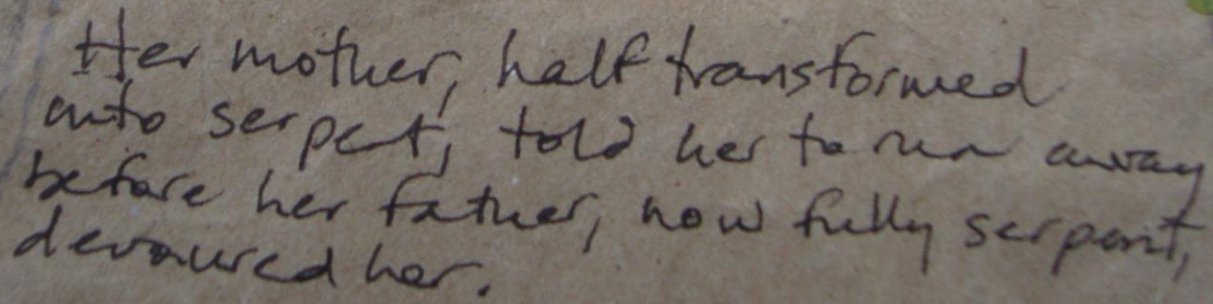 Her mother, half transformed
into serpet, told her to run away
before her father, now fully serpent,
devoured her.